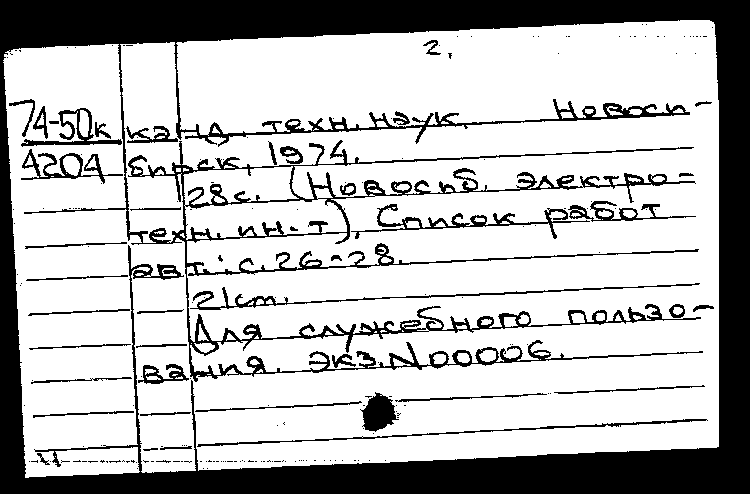 2.
74-50к канд. техн. наук. Новоси-
4204 бирск, 1974.
28с. (Новосиб. электро-
техн. ин-т). Список работ
авт.: с. 26-28.
21 cm.
Для служебного пользо-
вания. Экз. N00006.